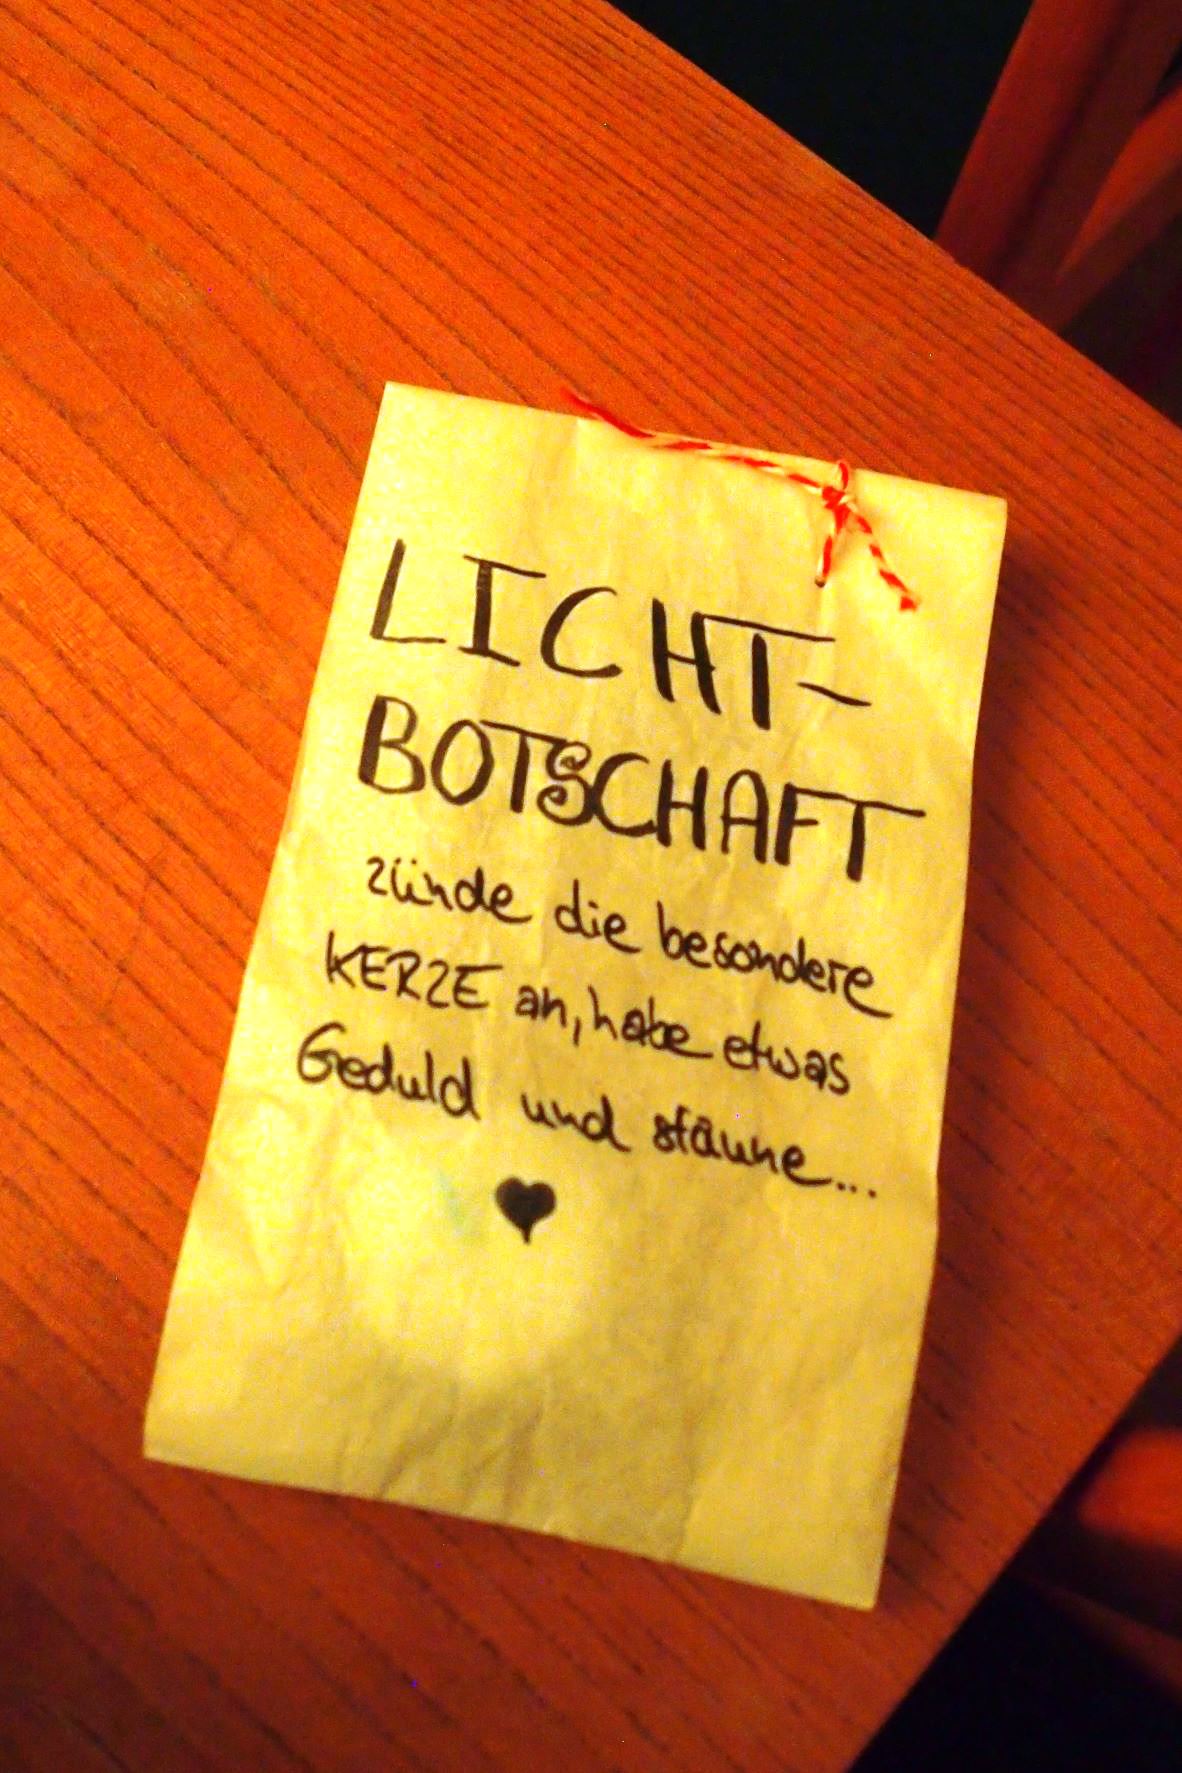 LICHT-
BOTSCHAFT
zünde die besondere
KERZE an, habe etwas
Geduld und stäune...